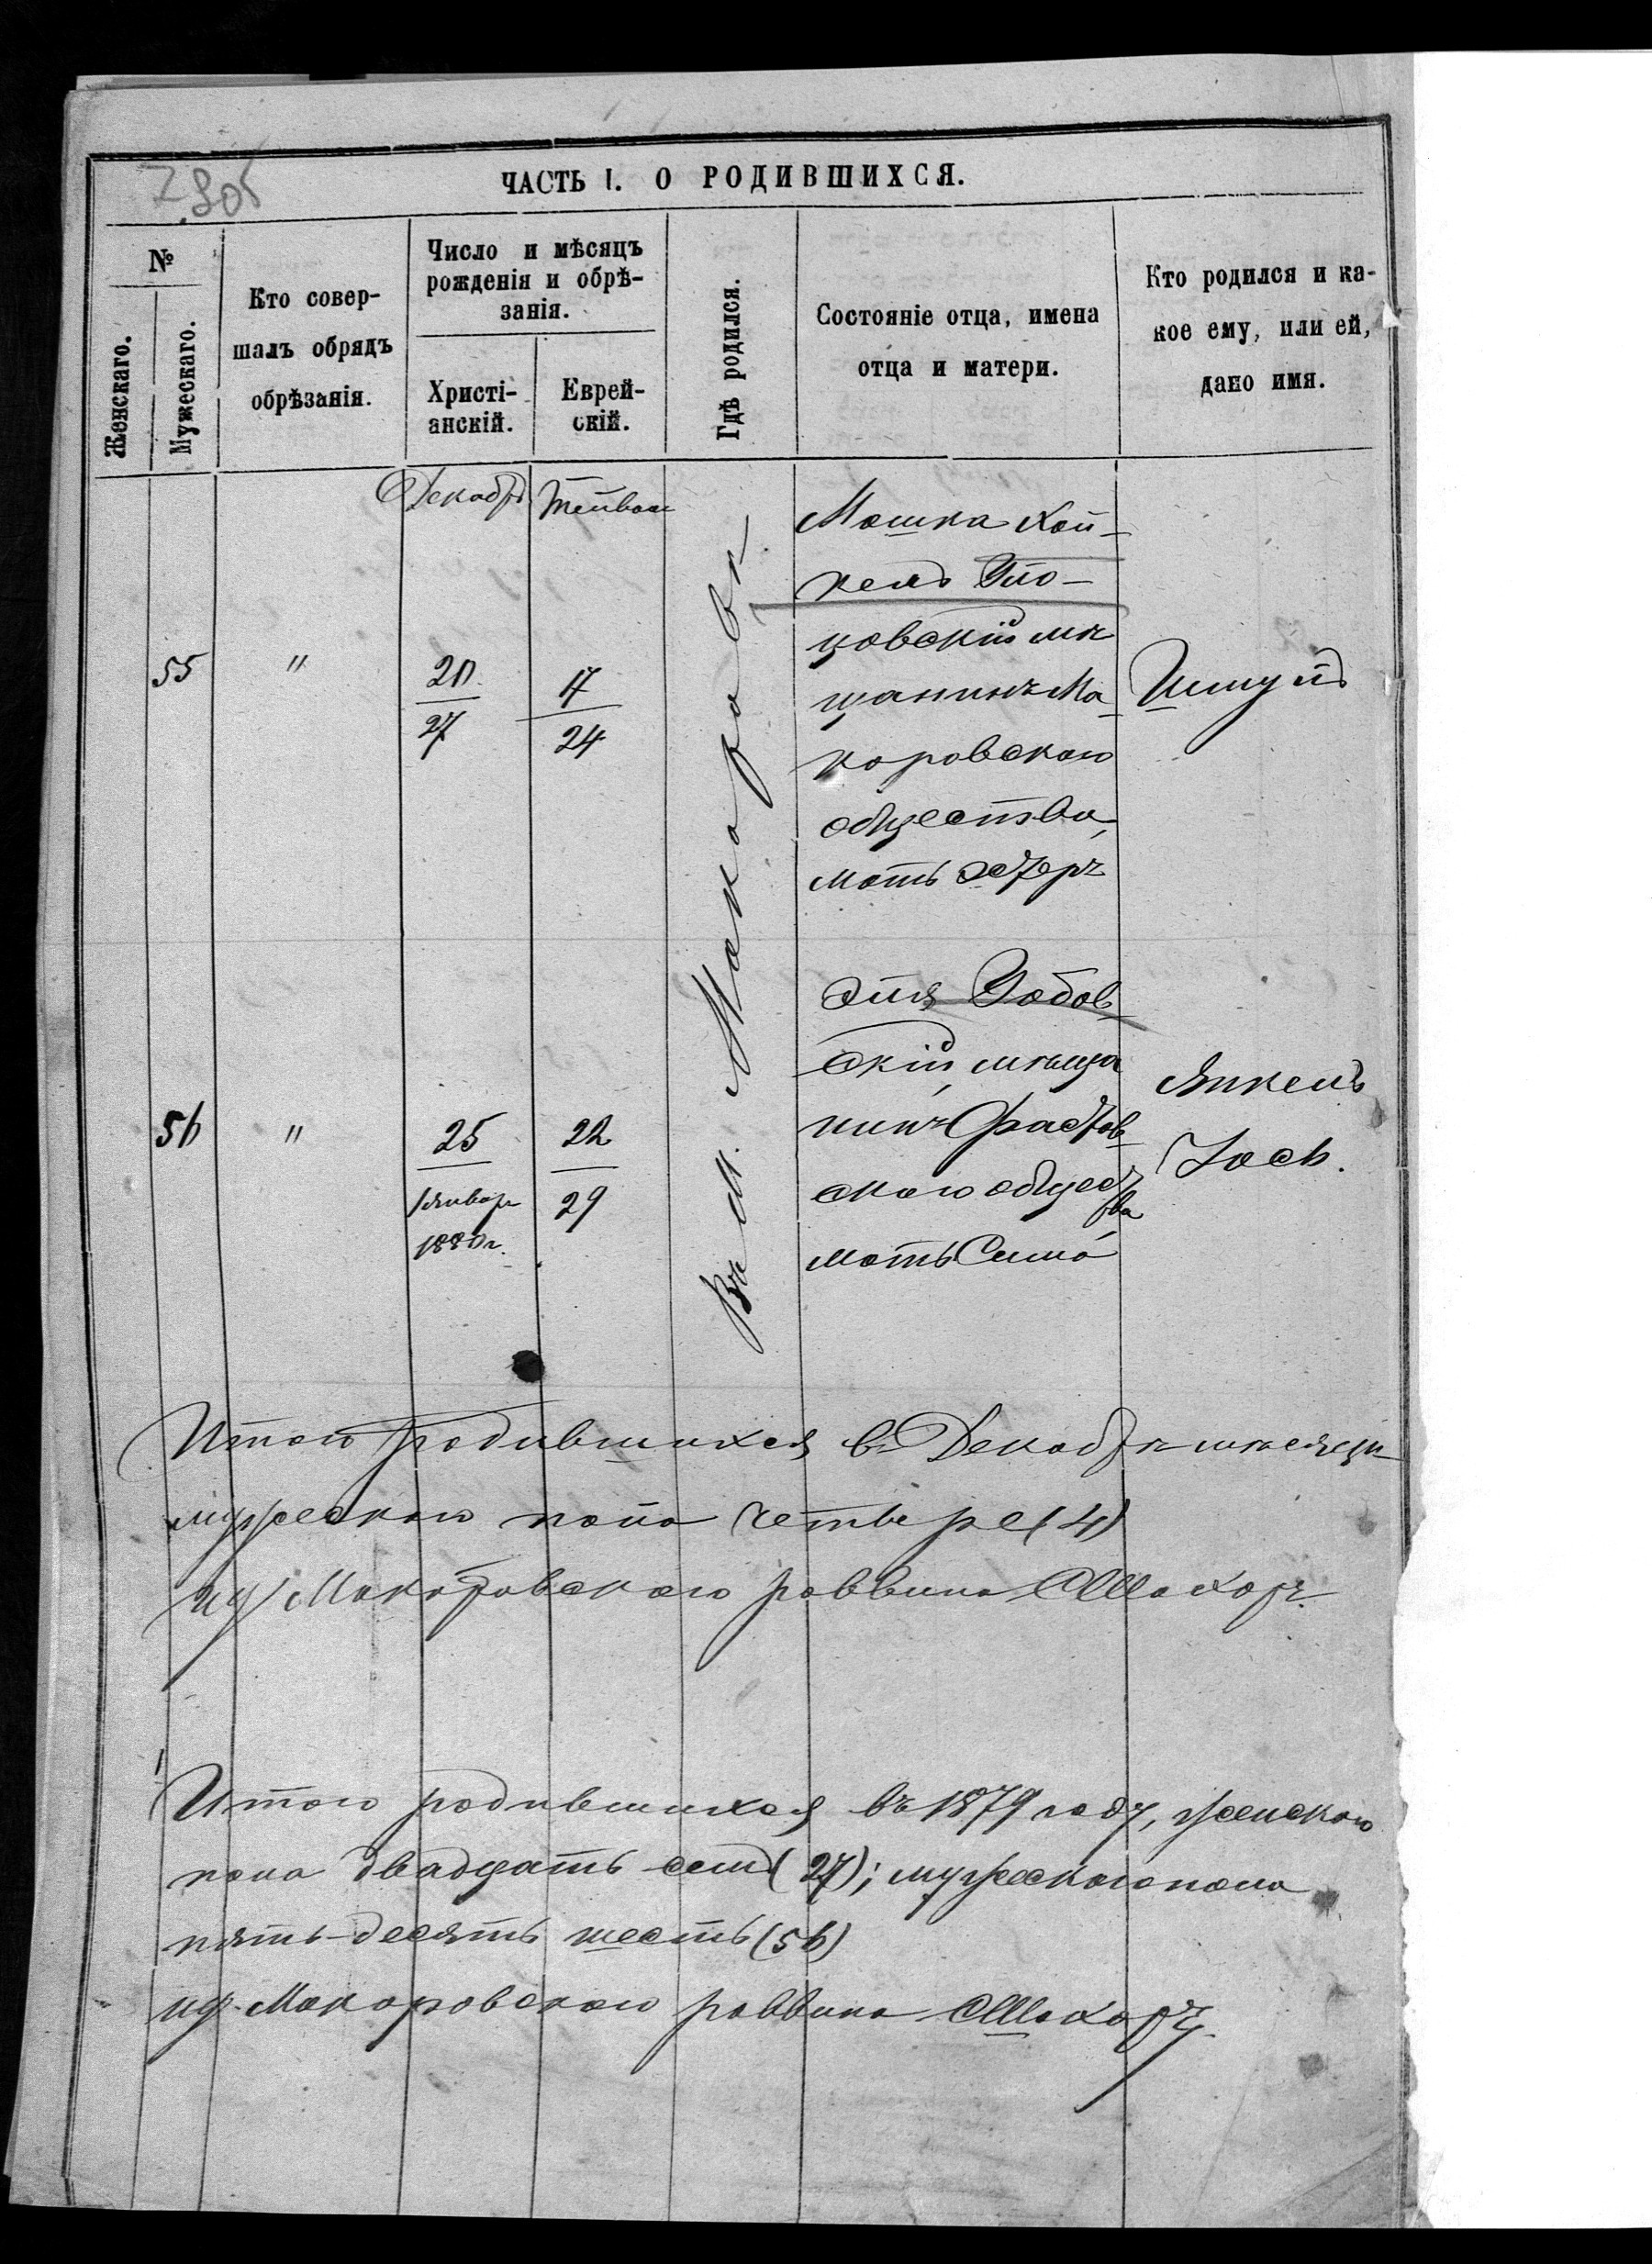 ЧАСТЬ I. О РОДИВШИХСЯ.
№
Женскаго.
Мужескаго.
Кто совер-
шалъ обрядъ
обрѣзанія.
Число и мѣсяцъ
рожденія и обрѣ-
занія.
Христі-
анскій.
Еврей-
скій.
Гдѣ родился.
Состояніе отца, имена
отца и матери.
Кто родился и ка-
кое ему, или ей,
дано имя.
Декабрь
55
"
20
27
17
24
Въ м. Макаровѣ
Мошка
цовскій мѣ
щанинъ Ма
каровскаго
общества,
мать Эстеръ
Шмуль
56
"
25
1 январ
1880 г.
22
29
скій мѣща
нинъ Фастов
скаго общест
ва
мать Сима
Янкель
Іось.
Итого родившихся въ Декабрѣ мѣсяцѣ
мужескаго пола четверо (4)
ид Макаровскаго раввина Шахоръ
Итого родившихся въ 1879 году, женскаго
пола двадцать семь (27); мужескаго пола
пять-десять шесть (56)
ид Макаровскаго раввина Шахоръ